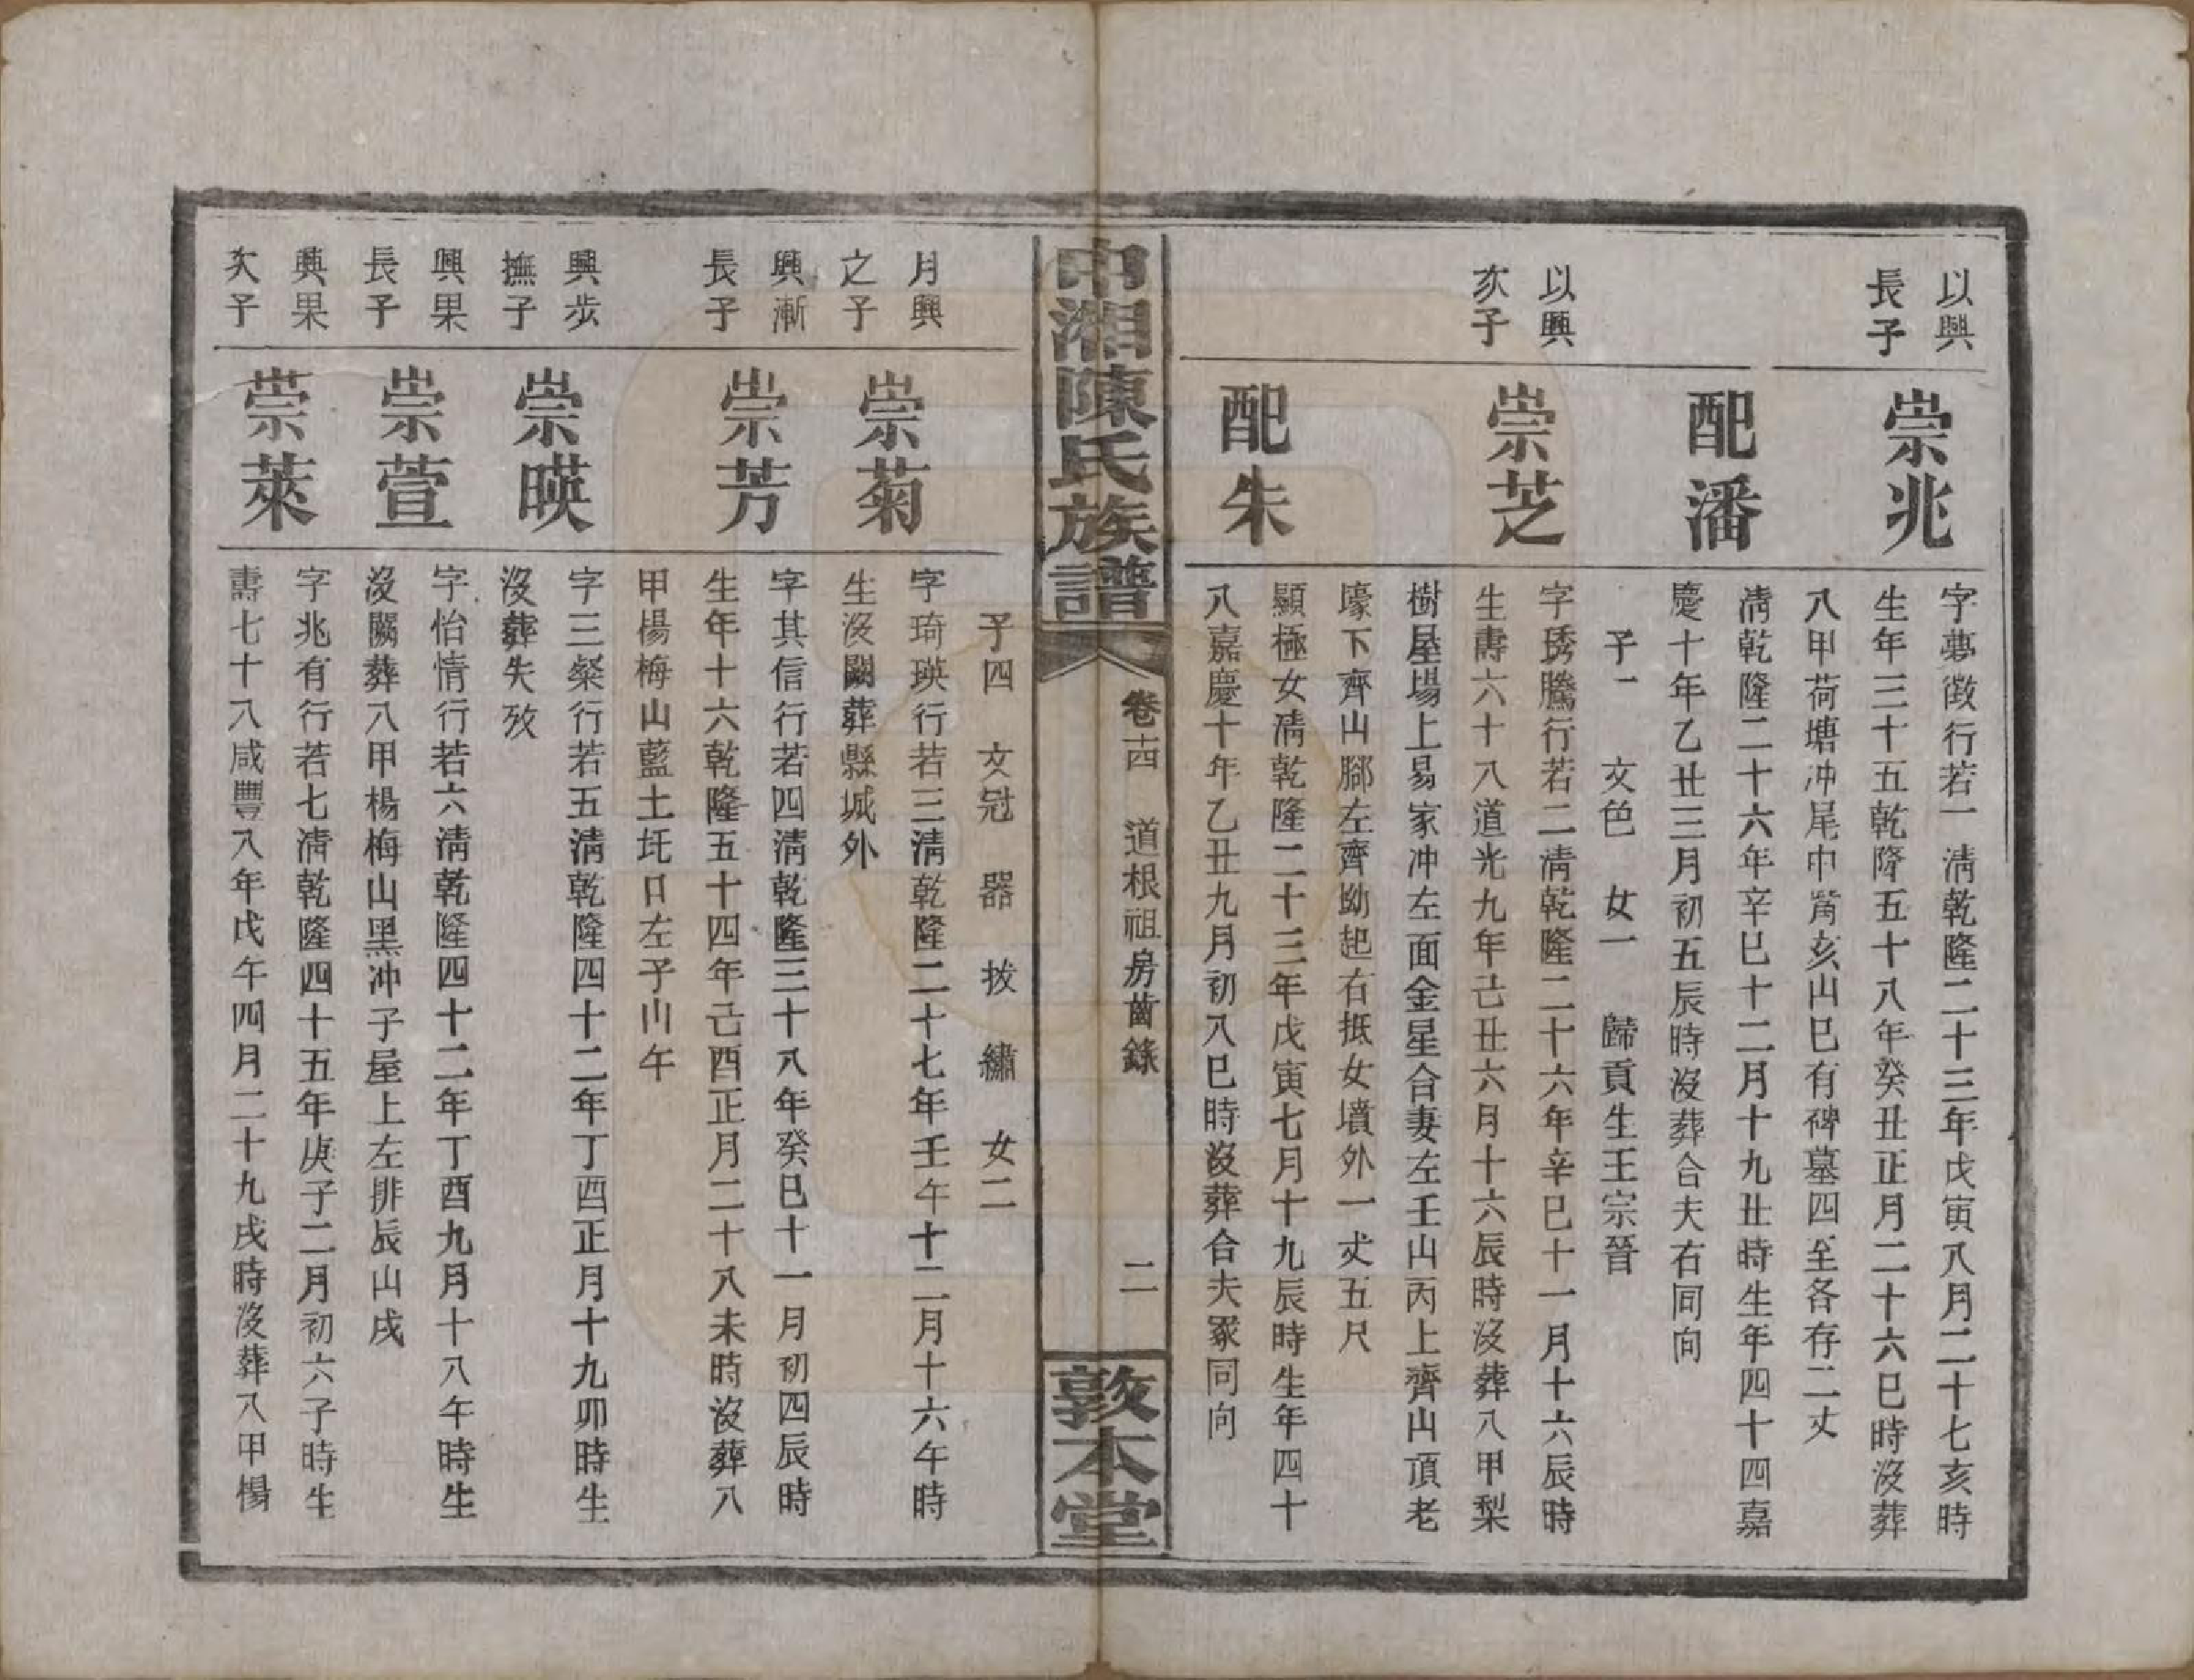 以興
長子
崇兆
字夢徵行若一清乾隆二十三年戊寅八月二十七亥時
生年三十五乾隆五十八年癸丑正月二十六巳時沒葬
八甲荷塘冲尾中嘴亥山巳有碑墓四至各存二丈
配潘
清乾隆二十六年辛巳十二月十九丑時生年四十四嘉
慶十年乙丑三月初五辰時沒葬合夫右同向
子一　文色　女一　歸貢生王宗晉
以興
次子
崇芝
字琇騰行若二清乾隆二十六年辛巳十一月十六辰時
生壽六十八道光九年己丑六月十六辰時沒葬八甲梨
樹屋場上易家冲左面金星合妻左壬山丙上齊山頂老
壕下齊山腳左齊坳起右抵女墳外一丈五尺
配朱
顯極女清乾隆二十三年戊寅七月十九辰時生年四十
八嘉慶十年乙丑九月初八巳時沒葬合夫冢同向
中湘陳氏族譜
卷十四　道根祖房齒錄　二
敦本堂
子四　文冠　器　拔　繡　女二
月興
之子
崇菊
字琦瑛行若三清乾隆二十七年壬午十二月十六午時
生沒闕葬縣城外
興漸
長子
崇芳
字其信行若四清乾隆三十八年癸巳十一月初四辰時
生年十六乾隆五十四年己酉正月二十八未時沒葬八
甲楊梅山藍土圫口左子山午
興步
撫子
崇暎
字三粲行若五清乾隆四十二年丁酉正月十九卯時生
沒葬失攷
興果
長子
崇萱
字怡情行若六清乾隆四十二年丁酉九月十八午時生
沒闕葬八甲楊梅山黑冲子屋上左排辰山戌
興果
次子
崇萊
字兆有行若七清乾隆四十五年庚子二月初六子時生
壽七十八咸豐八年戊午四月二十九戌時沒葬八甲楊